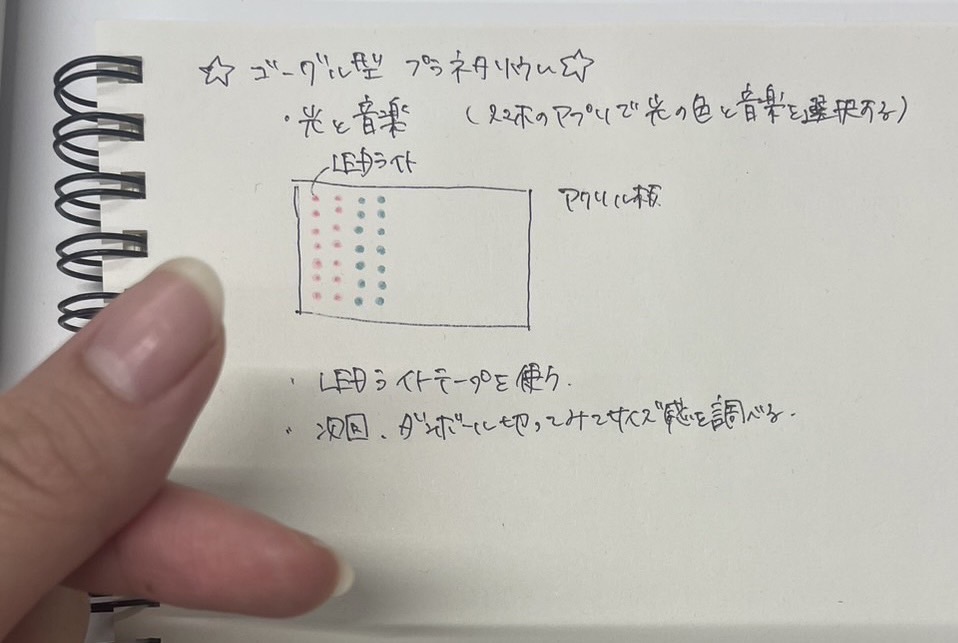 ☆ ゴーグル型 プラネタリウム ☆
・光と音楽 (スマホのアプリで光の色と音楽を選択する)
LEDライト
アクリル板
・LEDライトテープを使う.
・次回、ダンボール切ってみてサイズ感を調べる.